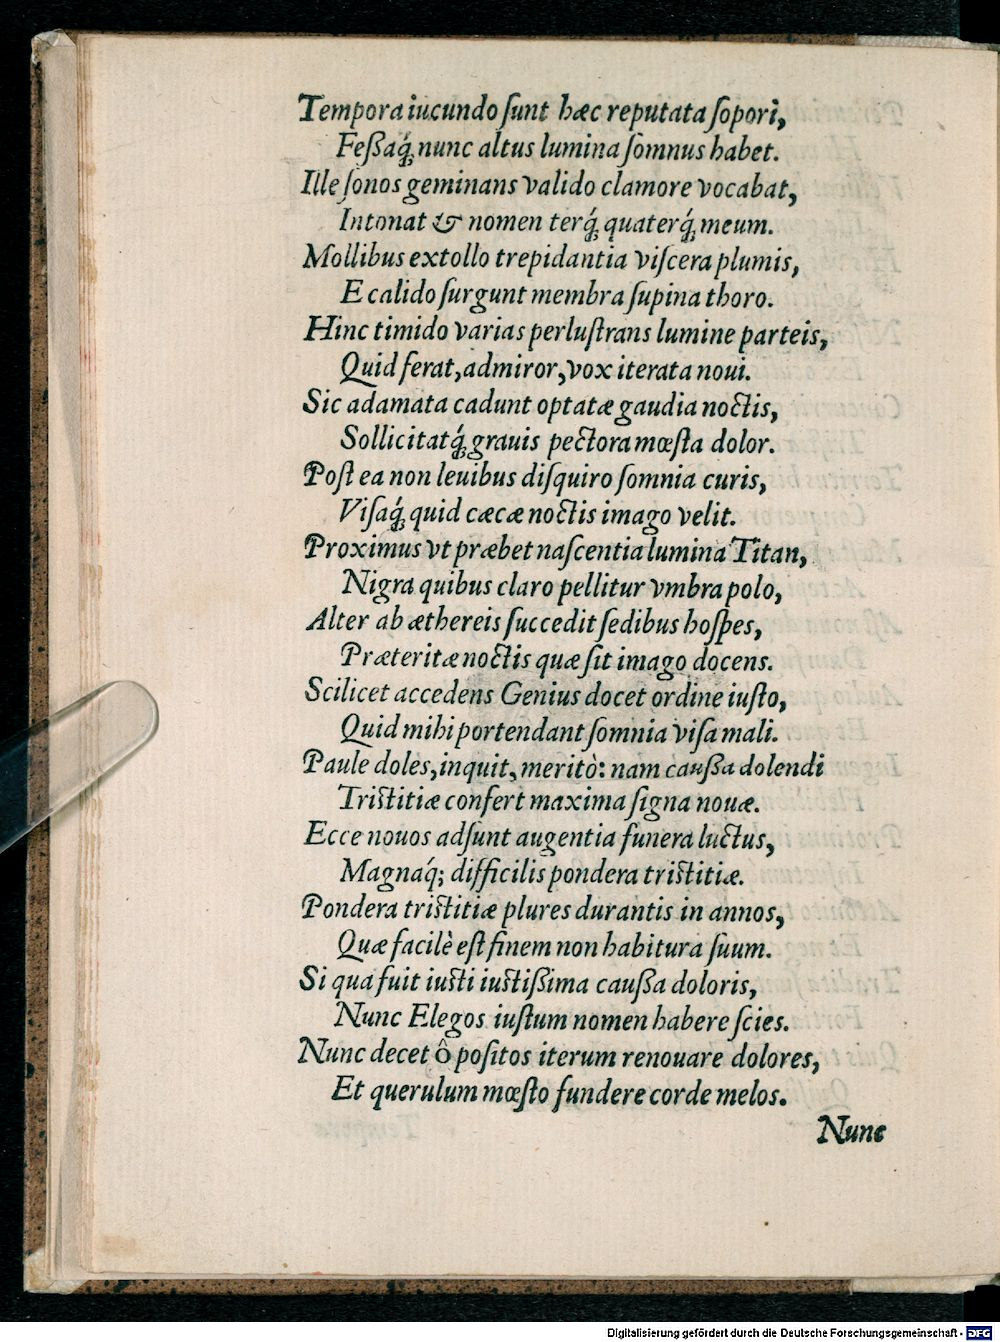 Tempora iucundo ſunt hæc reputata ſopori,
Feßaq́; nunc altus lumina ſomnus habet.
Ille ſonos geminans valido clamore vocabat,
Intonat & nomen terq́; quaterq́; meum.
Mollibus extollo trepidantia viſcera plumis,
E calido ſurgunt membra ſupina thoro.
Hinc timido varias perluſtrans lumine parteis,
Quid ferat, admiror, vox iterata noui.
Sic adamata cadunt optatæ gaudia noctis,
Sollicitatq́; grauis pectora mœſta dolor.
Poſt ea non leuibus diſquiro ſomnia curis,
Viſaq́; quid cæcæ noctis imago velit.
Proximus vt præbet naſcentia lumina Titan,
Nigra quibus claro pellitur vmbra polo,
Alter ab æthereis ſuccedit ſedibus hoſpes,
Præteritæ noctis quæ ſit imago docens.
Scilicet accedens Genius docet ordine iuſto,
Quid mihi portendant ſomnia viſa mali.
Paule doles, inquit, meritò: nam caußa dolendi
Triſtitiæ confert maxima ſigna nouæ.
Ecce nouos adſunt augentia funera luctus,
Magnaq́; difficilis pondera triſtitiæ.
Pondera triſtitiæ plures durantis in annos,
Quæ facilè eſt finem non habitura ſuum.
Si qua fuit iuſti iuſtißima caußa doloris,
Nunc Elegos iuſtum nomen habere ſcies.
Nunc decet ô poſitos iterum renouare dolores,
Et querulum mœſto fundere corde melos.
Nunc
Digitalisierung gefördert durch die Deutsche Forschungsgemeinschaft - DFG